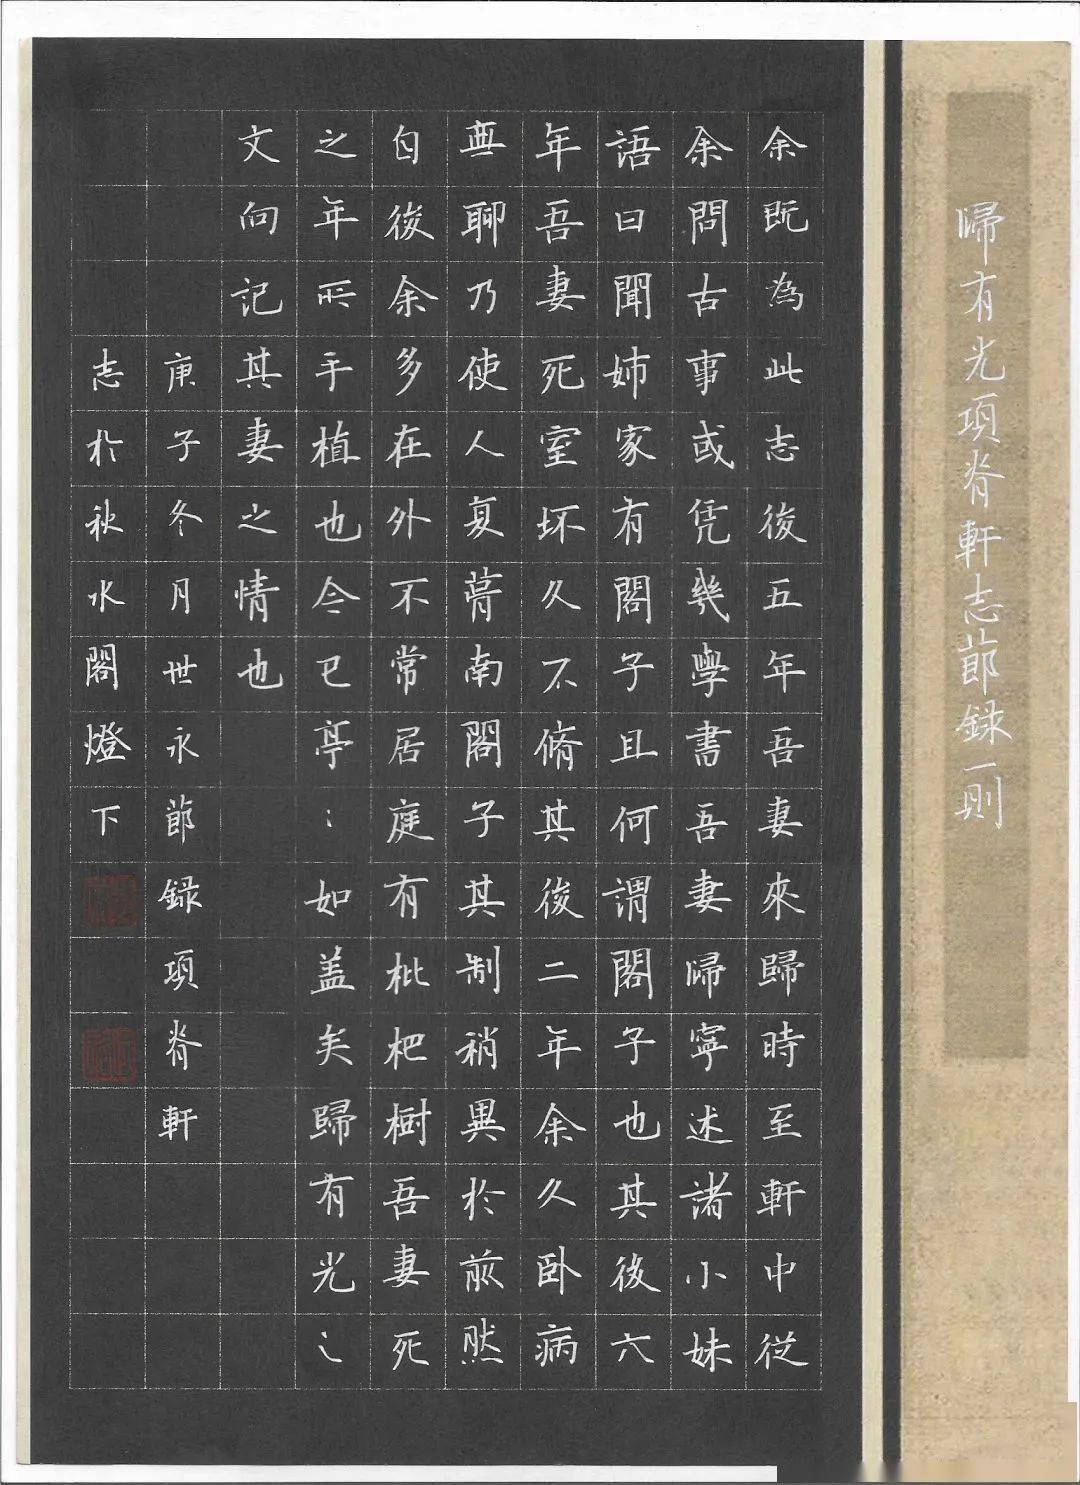 歸有光項脊軒志節録一則
余既為此志後五年吾妻來歸時至軒中從
余問古事或凭幾學書吾妻歸寧述諸小妹
語曰聞姊家有閣子且何謂閣子也其後六
年吾妻死室坏久不脩其後二年余久卧病
無聊乃使人复葺南閣子其制稍異於前然
自後余多在外不常居庭有枇杷樹吾妻死
之年所手植也今已亭：如盖矣歸有光之
文向記其妻之情也
庚子冬月世永節録項脊軒
志於秋水閣燈下